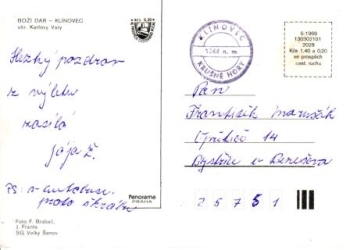 BOŽÍ DAR – KLÍNOVEC
okr. Karlovy Vary
Hezký pozdrav
z výletu
zasílá
Jája Z.
PS: v autobuse
proto škrábu
Foto F. Brabec,
J. Franta
SG Velký Šenov
Panorama
PRAHA
KLÍNOVEC
1244 n. m
KRUŠNÉ HORY
Kčs 1,40 a 0,20
ve prospěch
cest. ruchu
Pan
František
14
Bystřice u Benešova
2 5 7 5 1